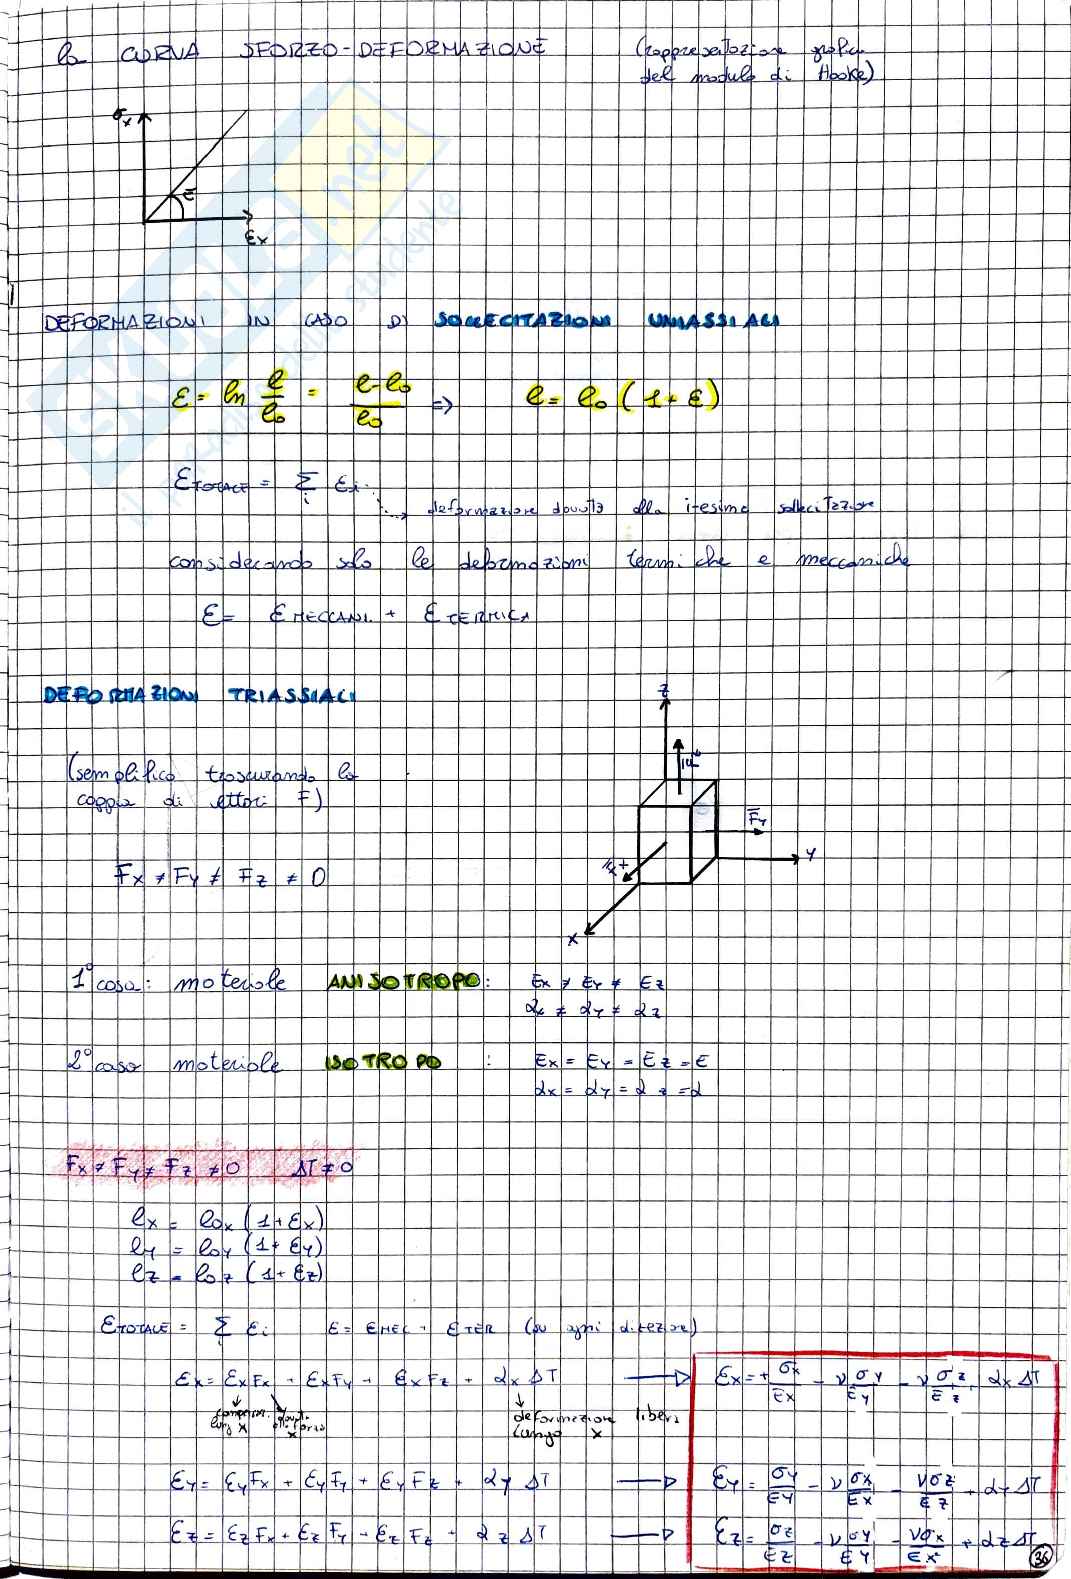 la CURVA SFORZO-DEFORMAZIONE (rappresentazione grafica
del modulo di Hooke)
σx
E
εx
DEFORMAZIONI IN CASO DI SOLLECITAZIONI UNIASSIALI
ε = ln l/l₀ = (l-l₀)/l₀ ⇒ l = l₀ (1+ε)
εTOTALE = Σi εi
deformazione dovuta alla i-esima sollecitazione
considerando solo le deformazioni termiche e meccaniche
ε = εMECCANI. + εTERMICA
DEFORMAZIONI TRIASSIALI
Z
(semplifico trascurando la
coppia di vettori F)
F̄y
Y
Fx ≠ Fy ≠ Fz ≠ 0
X
1° caso: materiale ANISOTROPO: Ex ≠ Ey ≠ Ez
αx ≠ αy ≠ αz
2° caso materiale ISOTROPO : Ex = Ey = Ez = E
αx = αy = αz = α
Fx ≠ Fy ≠ Fz ≠ 0 ΔT ≠ 0
lx = l₀x (1+εx)
ly = l₀y (1+εy)
lz = l₀z (1+εz)
εTOTALE = Σi εi ε = εMEC + εTER (su ogni direzione)
εx = εxFx + εxFy + εxFz + αx ΔT → εx = + σx/Ex - ν σy/Ey - ν σz/Ez + αx ΔT
lung x
x
deformazione libera
lungo x
εy = εyFx + εyFy + εyFz + αy ΔT → εy = σy/Ey - ν σx/Ex - νσz/Ez + αy ΔT
εz = εzFx + εzFy + εzFz + αz ΔT → εz = σz/Ez - ν σy/Ey - νσx/Ex + αz ΔT
36
SKUOLA.net
il portale dello studente